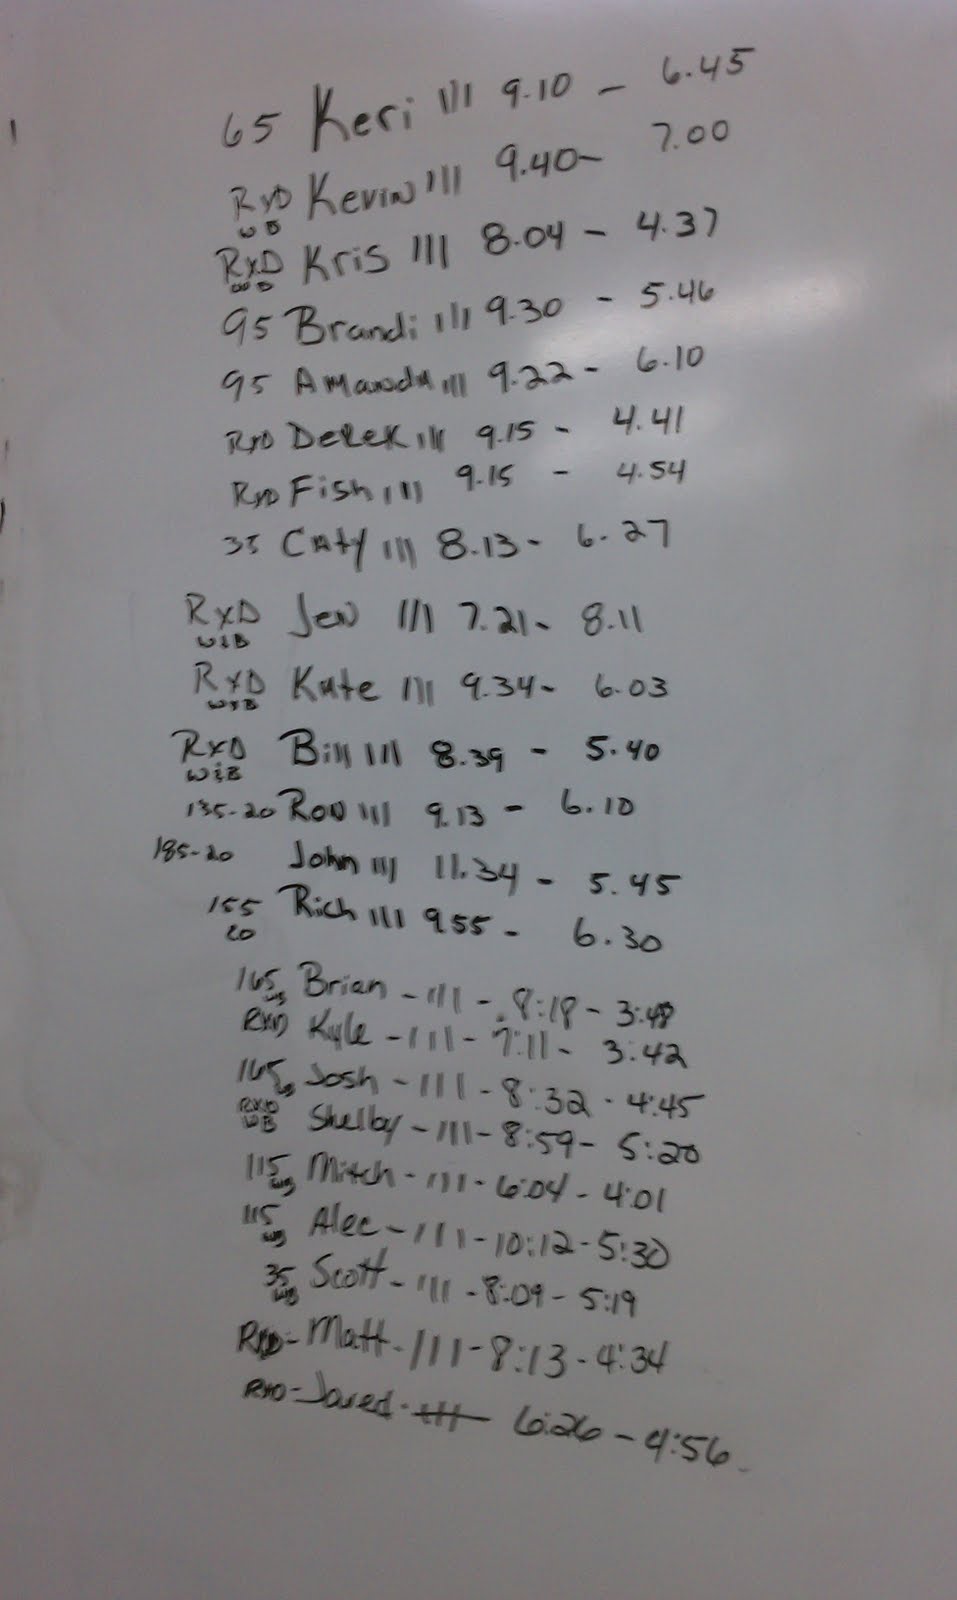 65 Keri III 9.10 - 6.45
RxD WB Kevin III 9.40- 7.00
RxD WB Kris III 8.04 - 4.37
95 Brandi III 9.30 - 5.46
95 Amanda III 9.22 - 6.10
RxD Derek III 9.15 - 4.41
RxD Fish III 9.15 - 4.54
35 Caty III 8.13- 6.27
RxD W&B Jen III 7.21- 8.11
RxD W&B Kate III 9.34- 6.03
RxD W&B Bill III 8.39 - 5.40
135-20 Ron III 9.13 - 6.10
185-20 John III 11.34 - 5.45
155 20 Rich III 9.55 - 6.30
165 Brian - III - 8:18 - 3:48
RXD Kyle - III - 7:11 - 3:42
165 Josh - III - 8:32 - 4:45
RXD WB Shelby - III - 8:59 - 5:20
115 WB Mitch - III - 6:04 - 4:01
115 WB Alec - III - 10:12 - 5:30
35 WB Scott - III - 8:09 - 5:19
RXD - Matt - III - 8:13 - 4:34
RXD - Jared - III 6:26 - 4:56